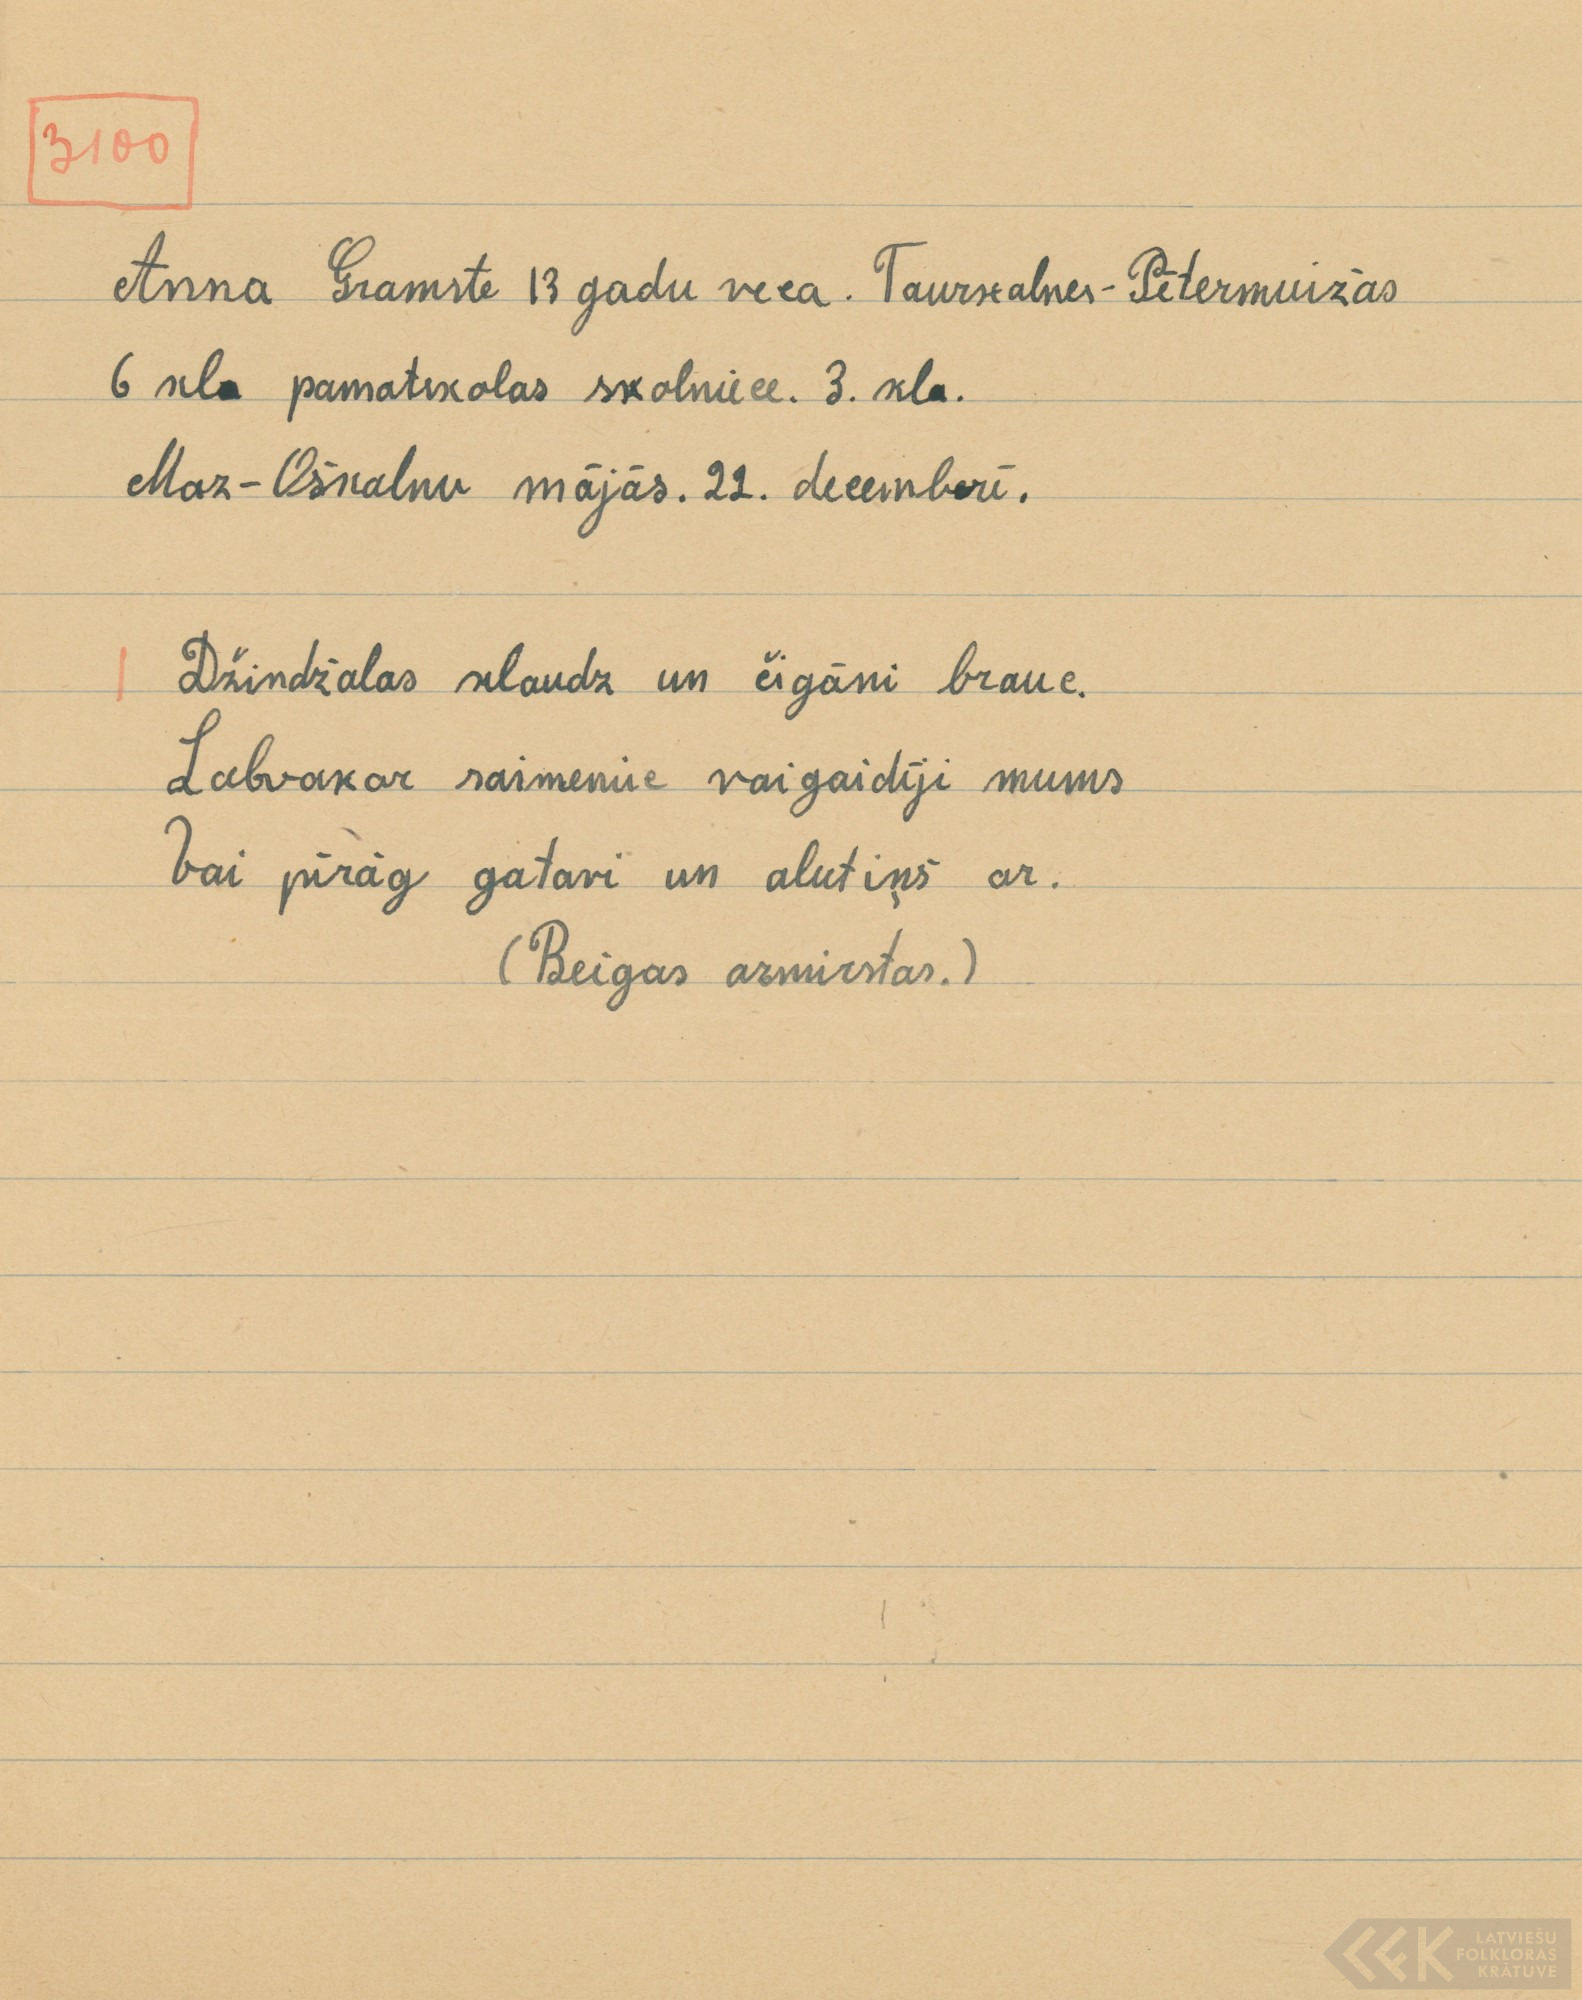 3100
Anna Gramste 13 gadu veca. Taurkalnes-Pētermuižās
6 kla pamatskolas skolniece. 3. kla.
Maz-Oškalnu mājās. 22. decemberī.
1 Džindžalas klaudz un čigāni brauc.
Labvakar saimenic vai gaidīji mums
Vai pīrāg gatavi un alutiņš ar.
(Beigas azmirstas.)
LATVIEŠU
FOLKLORAS
KRĀTUVE